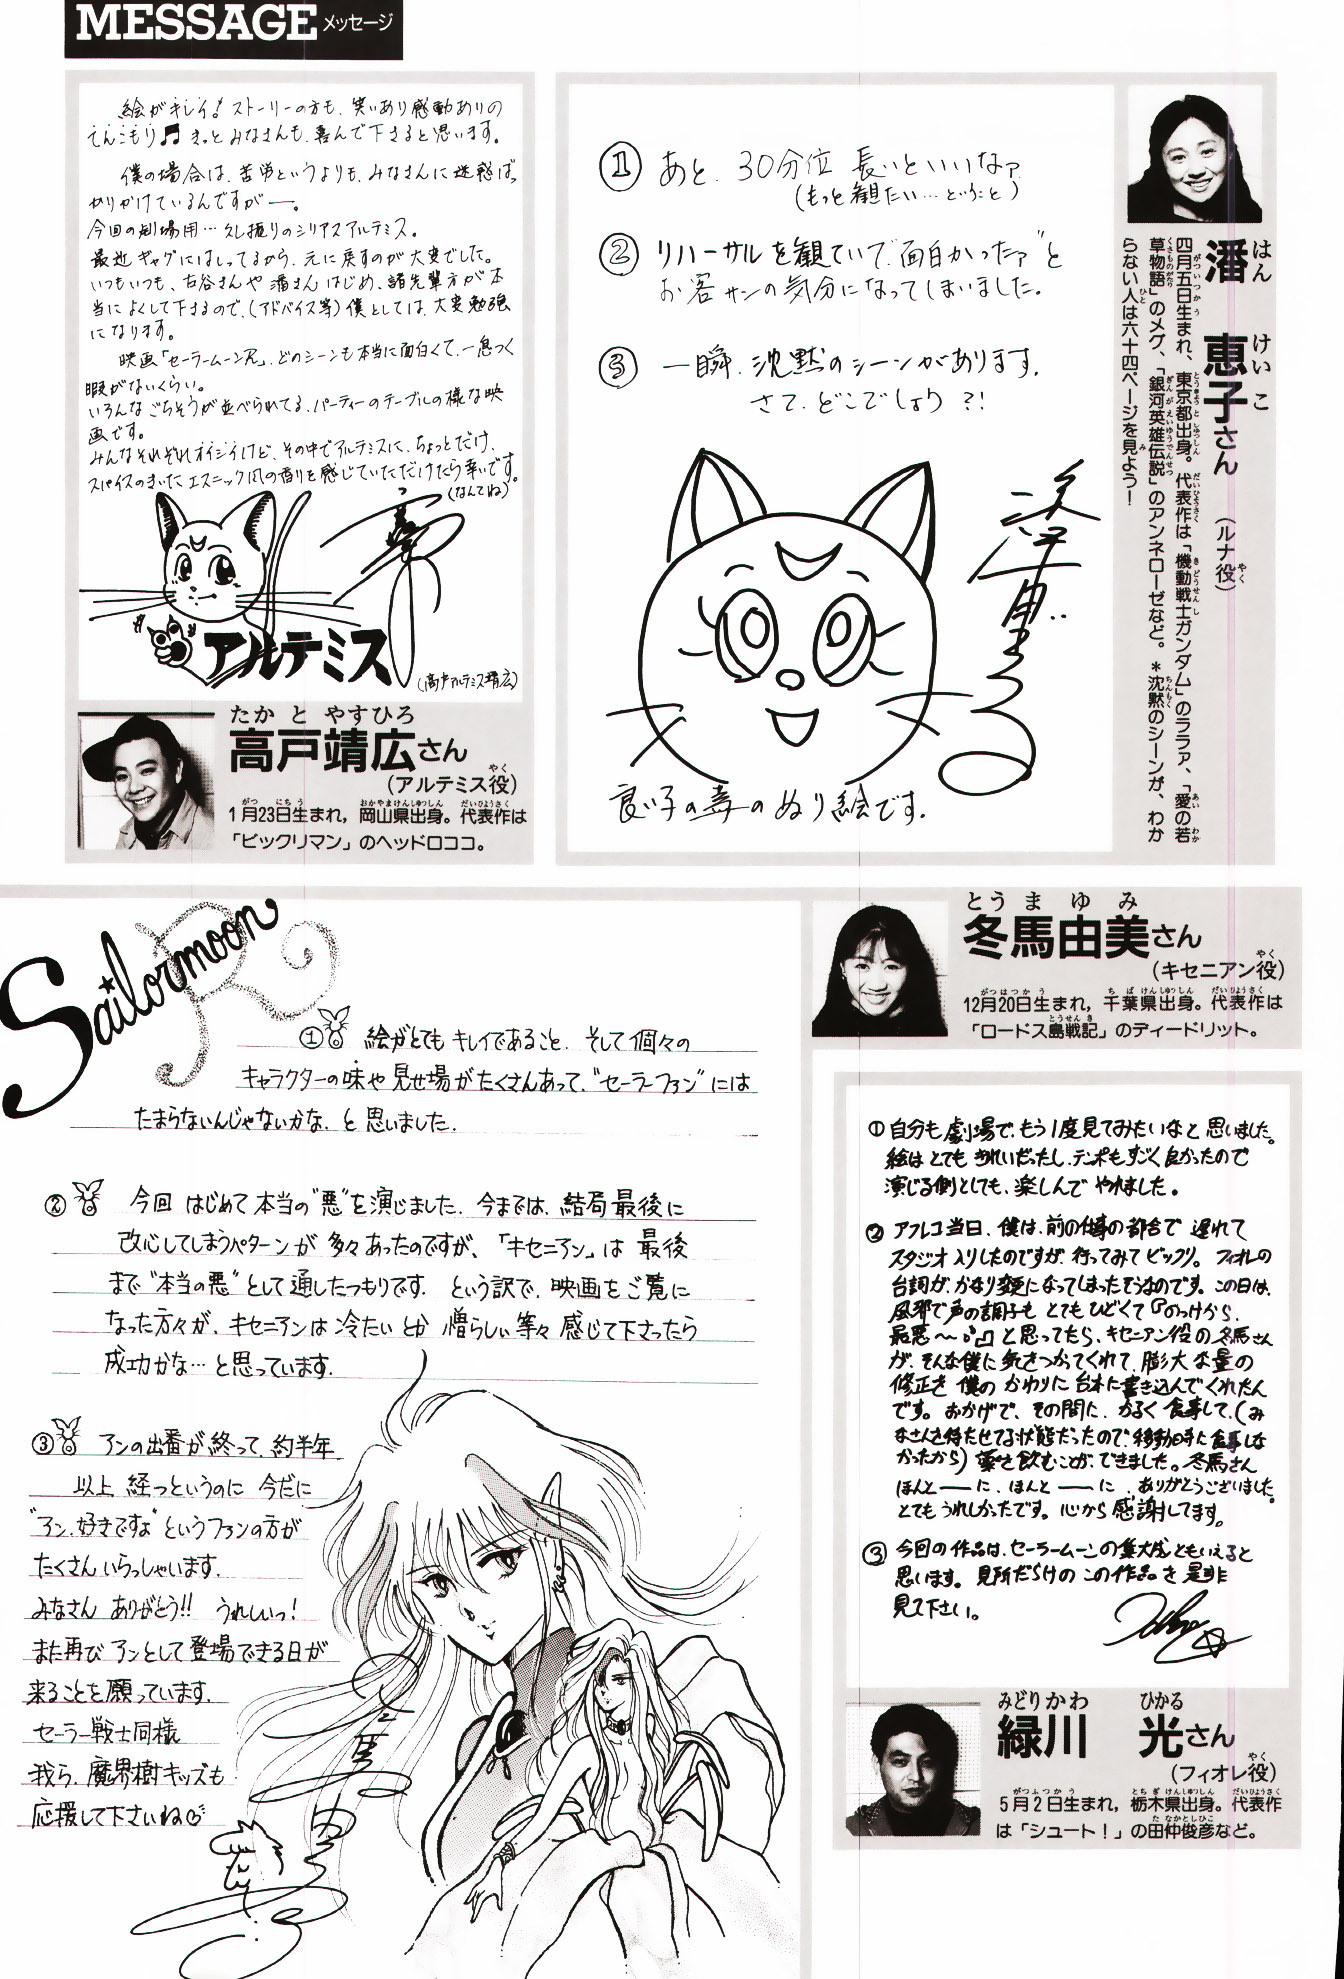 MESSAGE メッセージ
絵がキレイ! ストーリーの方も、笑いあり感動ありの
てんこもり♬ きっとみなさんも、喜んで下さると思います。
僕の場合は、苦労というよりも、みなさんに迷惑ばっ
かりかけているんですがー。
今回の劇場用…久し振りのシリアスアルテミス。
最近ギャグにはしってるから、元に戻すのが大変でした。
いつもいつも、古谷さんや潘さんはじめ、諸先輩方が本
当によくして下さるので、(アドバイス等)僕としては、大変勉強
になります。
映画「セーラームーンR」、どのシーンも本当に面白くて、一息つく
暇がないくらい。
いろんなごちそうが並べられてる、パーティーのテーブルの様な映
画です。
みんなそれぞれオイシイけど、その中でアルテミスに、ちょっとだけ、
スパイスのきいたエスニック風の香りを感じていただけたら幸いです。
(なんてね)
アルテミス
(高戸アルテミス靖広)
たかと やすひろ
高戸靖広さん
やく
(アルテミス役)
がつ にちう おかやまけんしゅっしん だいひょうさく
1月23日生まれ，岡山県出身。代表作は
「ビックリマン」のヘッドロココ。
① あと、30分位 長いといいなァ
(もっと観たい…ということ)
② リハーサルを観ていて“面白かったァ”と
お客サンの気分になってしまいました。
③ 一瞬、沈黙のシーンがあります。
さて、どこでしょう?!
潘恵子
良い子の為のぬり絵です。
はん けいこ
潘 恵子さん (ルナ役)
やく
がついつかう とうきょうとしゅっしん だいひょうさく きどうせんし あい わか
四月五日生まれ、東京都出身。代表作は「機動戦士ガンダム」のララァ、「愛の若
くさものがたり ぎんがえいゆうでんせつ ちんもく
草物語」のメグ、「銀河英雄伝説」のアンネローゼなど。＊沈黙のシーンが、わか
ひと み
らない人は六十四ページを見よう!
とうまゆみ
冬馬由美さん
やく
(キセニアン役)
がつはつかう ちばけんしゅっしん だいひょうさく
12月20日生まれ，千葉県出身。代表作は
とうせんき
「ロードス島戦記」のディードリット。
Sailormoon R
① 絵がとてもキレイであること、そして個々の
キャラクターの味や見せ場がたくさんあって、“セーラーファン”には
たまらないんじゃないかな、と思いました。
② 今回 はじめて本当の“悪”を演じました。今までは、結局最後に
改心してしまうパターンが多々あったのですが、「キセニアン」は最後
まで“本当の悪”として通したつもりです。という訳で、映画をご覧に
なった方々が、キセニアンは冷たいとか憎らしい等々感じて下さったら
成功かな…と思っています。
③ アンの出番が終って、約半年
以上経つというのに今だに
“アン、好きですよ”というファンの方が
たくさんいらっしゃいます。
みなさん ありがとう!! うれしいっ!
また再びアンとして登場できる日が
来ることを願っています。
セーラー戦士同様
我ら、魔界樹キッズも
応援して下さいね
冬馬由美
① 自分も劇場で、もう1度見てみたいなと思いました。
絵はとてもきれいだったし、テンポもすごく良かったので
演じる側としても、楽しんでやれました。
② アフレコ当日、僕は、前の仕事の都合で遅れて
スタジオ入りしたのですが、行ってみてビックリ。フィオレの
台詞が、かなり変更になってしまったそうなのです。この日は、
風邪で声の調子もとてもひどくて『のっけから、
最悪〜。』と思ってたら、キセニアン役の冬馬さん
が、そんな僕に気をつかってくれて、膨大な量の
修正を僕のかわりに台本に書き込んでくれたん
です。おかげで、その間に、かるく食事して、(み
なさんを待たせてる状態だったので、移動時に食事しな
かったから)薬を飲むことが、できました。冬馬さん
ほんとーーに、ほんとーーに、ありがとうございました。
とてもうれしかったです。心から感謝してます。
③ 今回の作品は、セーラームーンの集大成ともいえると
思います。見所だらけのこの作品を是非
見て下さい。
みどりかわ ひかる
緑川 光さん
やく
(フィオレ役)
がつふつかう とちぎけんしゅっしん だいひょうさく
5月2日生まれ，栃木県出身。代表作
たなかとしひこ
は「シュート!」の田仲俊彦など。